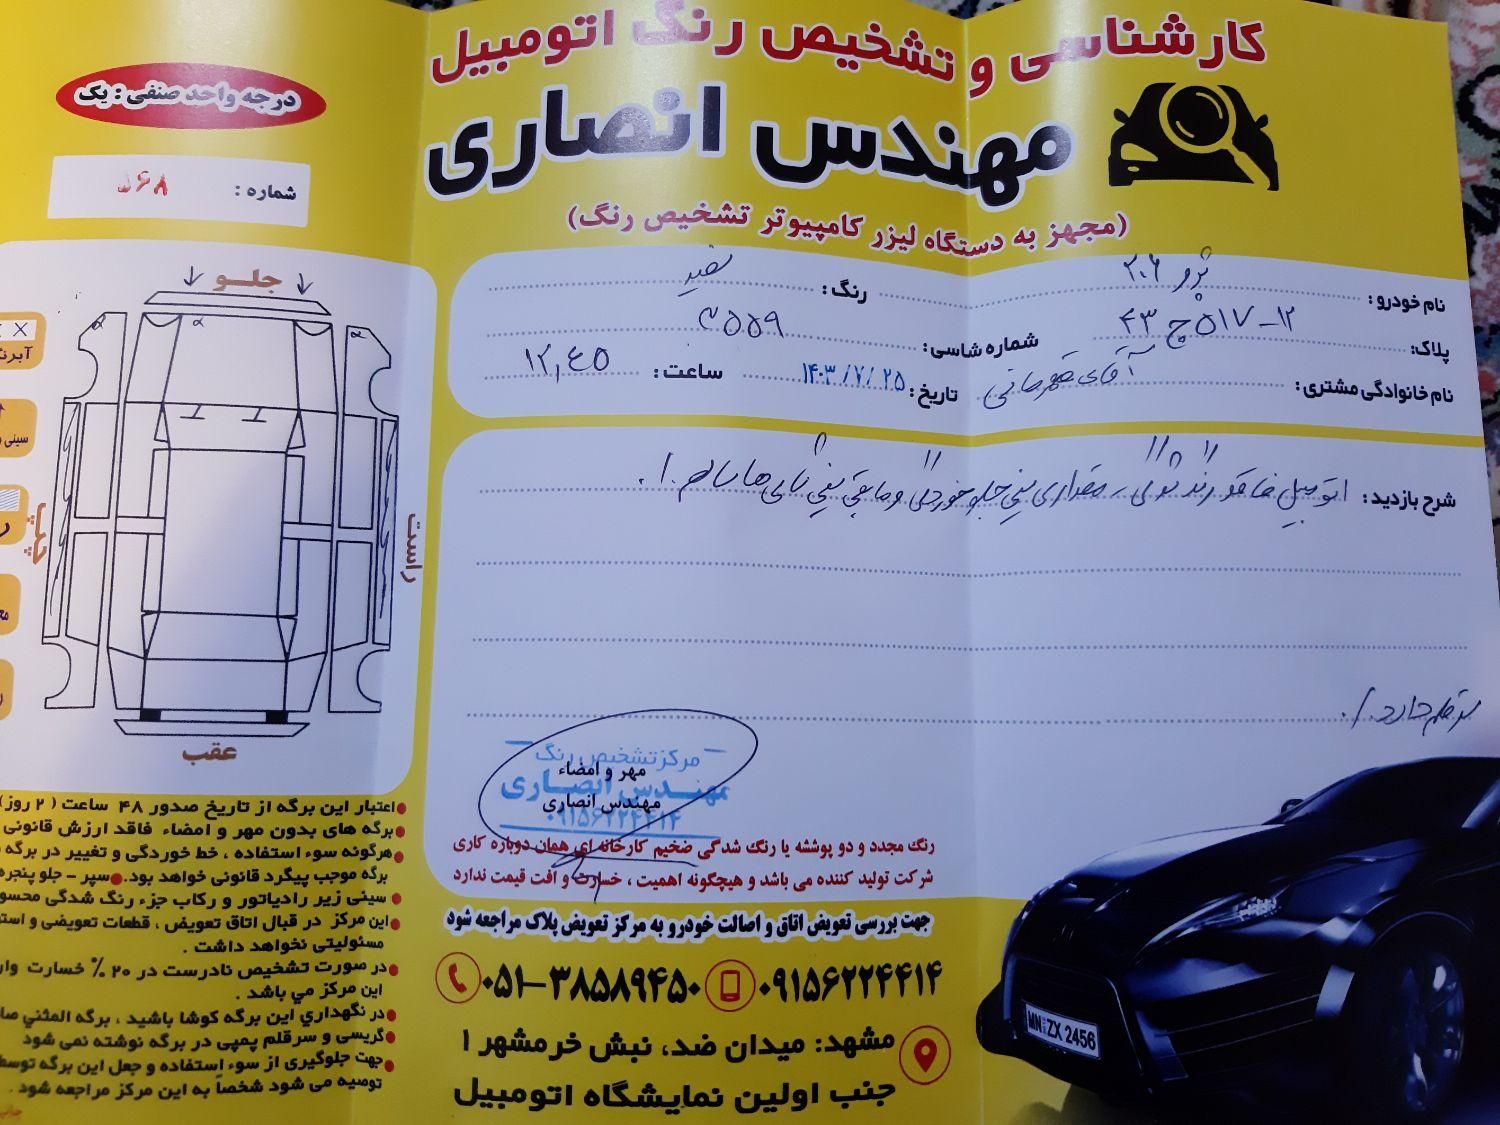 کارشناسی و تشخیص رنگ اتومبیل
مهندس انصاری
(مجهز به دستگاه لیزر کامپیوتر تشخیص رنگ)
درجه واحد صنفی : یک
شماره : ۵۶۸
نام خودرو : پژو ۲۰۶
رنگ : سفید
پلاک: ۱۲ - ۵۱۷ ج ۴۳
شماره شاسی :
نام خانوادگی مشتری : آقای قهرمانی
تاریخ : ۱۴۰۳/۷/۲۵
ساعت : ۱۲,۴۵
شرح بازدید : اتومبیل فاقد رنگ
جلو
عقب
راست
چپ
آبرنگ
سینی
مرکز تشخیص رنگ
مهندس انصاری
۰۹۱۵۶۲۲۴۴۱۴
مهر و امضاء
مهندس انصاری
رنگ مجدد و دو پوششه یا رنگ شدگی ضخیم کارخانه ای همان دوباره کاری
شرکت تولید کننده می باشد و هیچگونه اهمیت ، خسارت و افت قیمت ندارد
جهت بررسی تعویض اتاق و اصالت خودرو به مرکز تعویض پلاک مراجعه شود
۰۹۱۵۶۲۲۴۴۱۴ ۰۵۱-۳۸۵۸۹۴۵۰
مشهد: میدان ضد، نبش خرمشهر ۱
جنب اولین نمایشگاه اتومبیل
اعتبار این برگه از تاریخ صدور ۴۸ ساعت ( ۲ روز)
برگه های بدون مهر و امضاء فاقد ارزش قانونی
هرگونه سوء استفاده ، خط خوردگی و تغییر در برگه
برگه موجب پیگرد قانونی خواهد بود. سپر - جلو پنجره
سینی زیر رادیاتور و رکاب جزء رنگ شدگی
این مرکز در قبال اتاق تعویض ، قطعات تعویضی و
مسئولیتی نخواهد داشت .
در صورت تشخیص نادرست در ۲۰ % خسارت
این مرکز می باشد .
در نگهداری این برگه کوشا باشید ، برگه المثنی
گریسی و سرقلم پمپی در برگه نوشته نمی شود
جهت جلوگیری از سوء استفاده و جعل این برگه
توصیه می شود شخصاً به این مرکز مراجعه شود .
MN ZX 2456